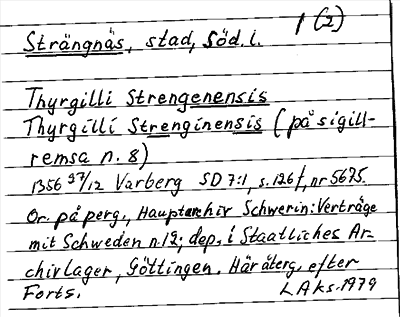 1 (2)
Strängnäs, stad, Söd. l.
Thyrgilli Strengenensis
Thyrgilli Strenginensis (på sigill-
remsa n. 8)
1356 27/12 Varberg SD 7:1, s. 126 f, nr 5675.
Or. på perg., Hauptarchiv Schwerin: Verträge
mit Schweden n. 12; dep. i Staatliches Ar-
chivlager, Göttingen. Här återg. efter
Forts. LAks. 1979